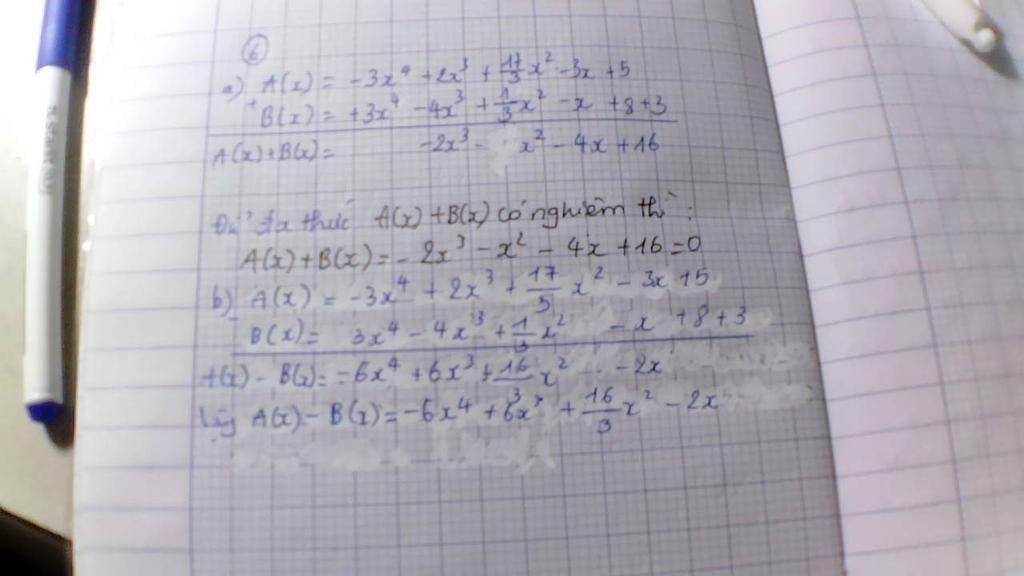 6
a) A(x) = -3x⁴ + 2x³ + 17/3 x² - 3x + 5
+ B(x) = +3x⁴ - 4x³ + 1/3 x² - x + 8 + 3
A(x) + B(x) = -2x³ - x² - 4x + 16
đa thức A(x) + B(x) có nghiệm thì :
A(x) + B(x) = - 2x³ - x² - 4x + 16 = 0
b) A(x) = -3x⁴ + 2x³ + 17/3 x² - 3x + 5
B(x) = 3x⁴ - 4x³ + 1/3 x² - x + 8 + 3
A(x) - B(x) = -6x⁴ + 6x³ + 16/3 x² - 2x
Vậy A(x) - B(x) = -6x⁴ + 6x³ + 16/3 x² - 2x